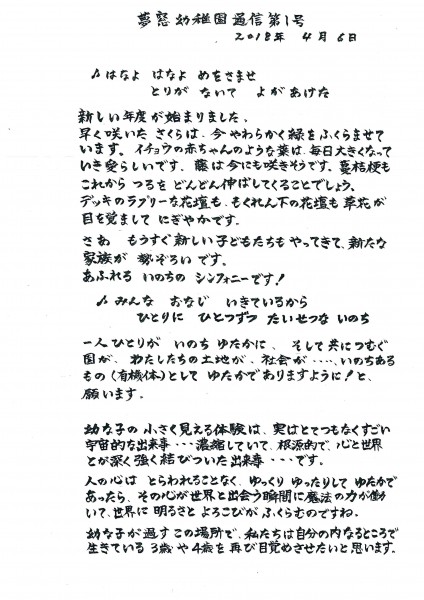 夢窓幼稚園通信第1号
2018年 4月 6日
♪はなよ はなよ めをさませ
とりが ないて よがあけた
新しい年度が始まりました、
早く咲いた さくらは、今やわらかく緑をふくらませて
います。イチョウの赤ちゃんのような葉は、毎日大きくなって
いき愛らしいです、藤は今にも咲きそうです。蔓桔梗も
これから つるを どんどん伸ばしてくることでしょう、
デッキのラブリーな花壇も、もくれん下の花壇も 草花が
目を覚まして にぎやかです。
さあ もうすぐ新しい子どもたちも やってきて、新たな
家族が 勢ぞろいです。
あふれる いのちの シンフォニーです!
♪みんな おなじ いきているから
ひとりに ひとつずつ たいせつな いのち
一人ひとりが いのち ゆたかに、 そして共につむぐ
園が、わたしたちの土地が、社会が ‥‥、いのちある
もの(有機体)として ゆたかでありますように!と、
願います。
幼な子の 小さく見える体験は、実はとてつもなくすごい
宇宙的な出来事・・・濃縮していて、根源的で、心と世界
とが深く強く結びついた出来事・・・です。
人の心は とらわれることなく、ゆっくり ゆったりして ゆたかで
あったら、その心が世界と出会う瞬間に魔法の力が働
いて、世界に 明るさと よろこびが ふくらむのですね、
幼な子が過すこの場所で、私たちは自分の内なるところで
生きている 3歳や4歳を再び目覚めさせたいと思います。